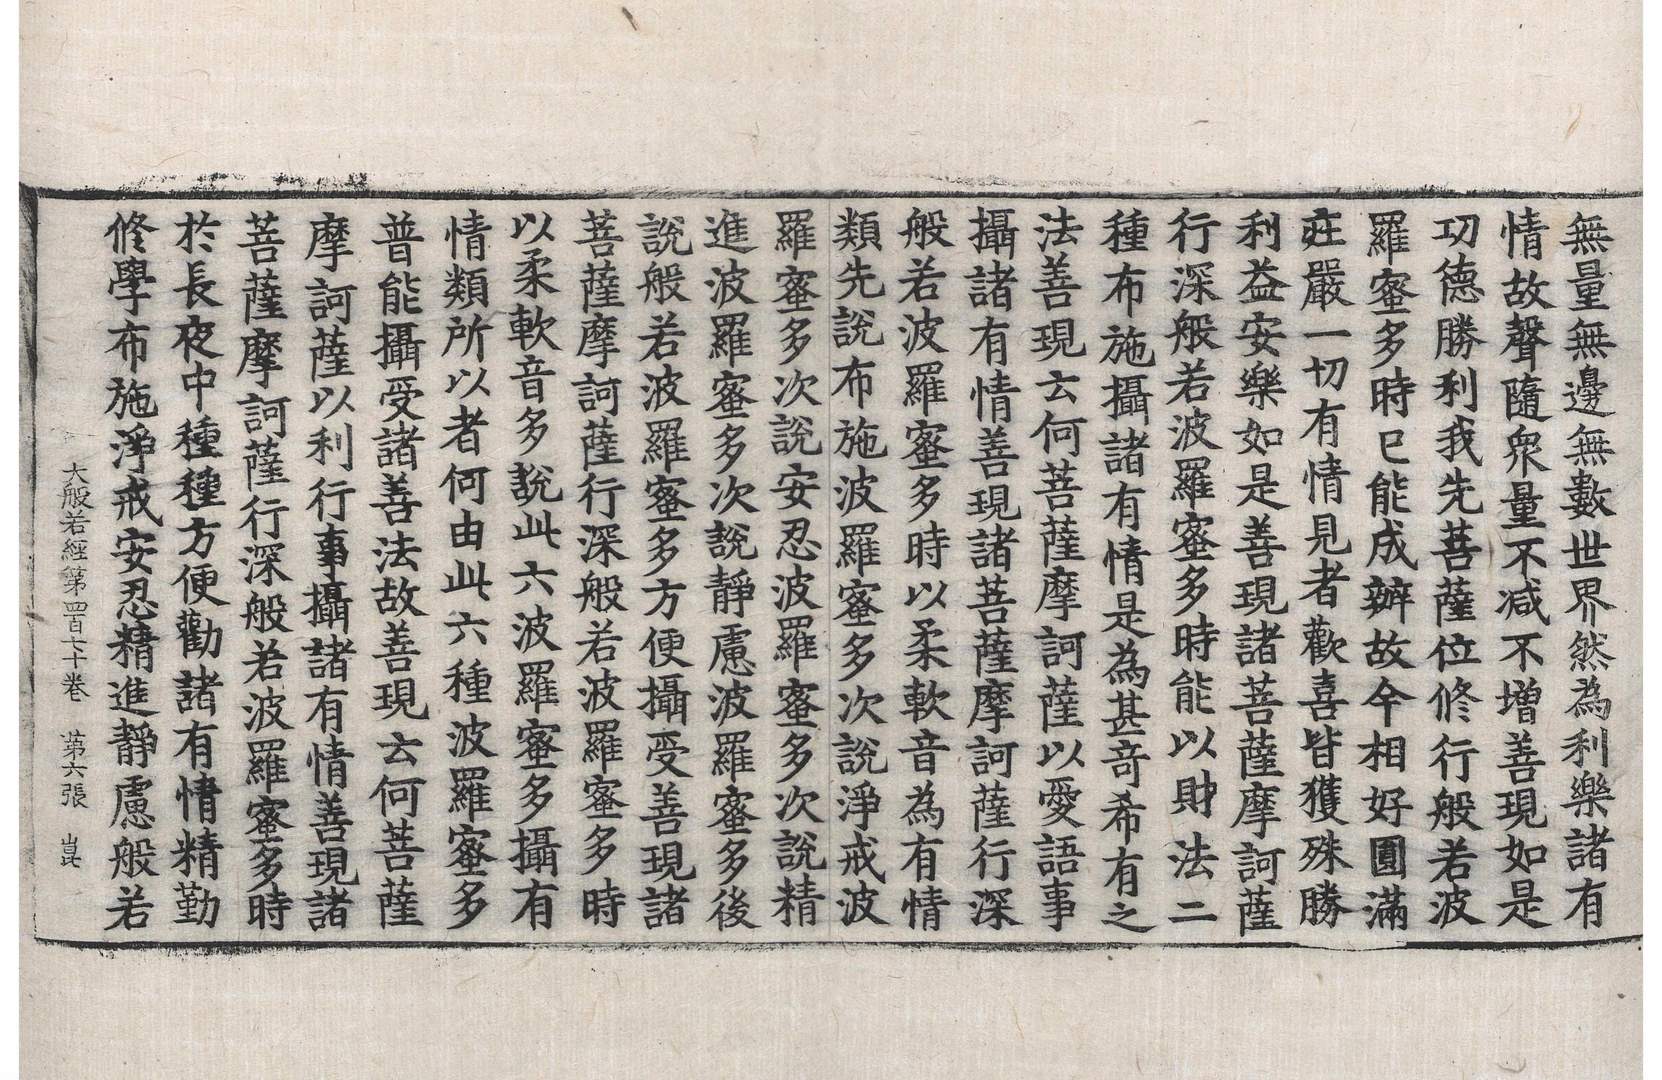 無量無邊無數世界然為利樂諸有
情故聲隨衆量不减不增善現如是
功德勝利我先菩薩位修行般若波
羅蜜多時已能成辦故今相好圓滿
莊嚴一切有情見者歡喜皆獲殊勝
利益安樂如是善現諸菩薩摩訶薩
行深般若波羅蜜多時能以財法二
種布施攝諸有情是為甚奇希有之
法善現云何菩薩摩訶薩以愛語事
攝諸有情善現諸菩薩摩訶薩行深
般若波羅蜜多時以柔軟音為有情
類先說布施波羅蜜多次說淨戒波
羅蜜多次說安忍波羅蜜多次說精
進波羅蜜多次說靜慮波羅蜜多後
說般若波羅蜜多方便攝受善現諸
菩薩摩訶薩行深般若波羅蜜多時
以柔軟音多說此六波羅蜜多攝有
情類所以者何由此六種波羅蜜多
普能攝受諸善法故善現云何菩薩
摩訶薩以利行事攝諸有情善現諸
菩薩摩訶薩行深般若波羅蜜多時
於長夜中種種方便勸諸有情精勤
修學布施淨戒安忍精進靜慮般若
大般若經第四百七十卷 第六張 崑